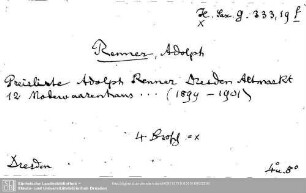 H. Sax. G. 333,19 f
x
Renner, Adolph
Preisliste Adolph Renner Dresden Altmarkt
12 Modewaarenhaus ... (1899 - 1901)
4
x
Dresden
4u.8°
Sächsische Landesbibliothek -
Staats- und Universitätsbibliothek Dresden